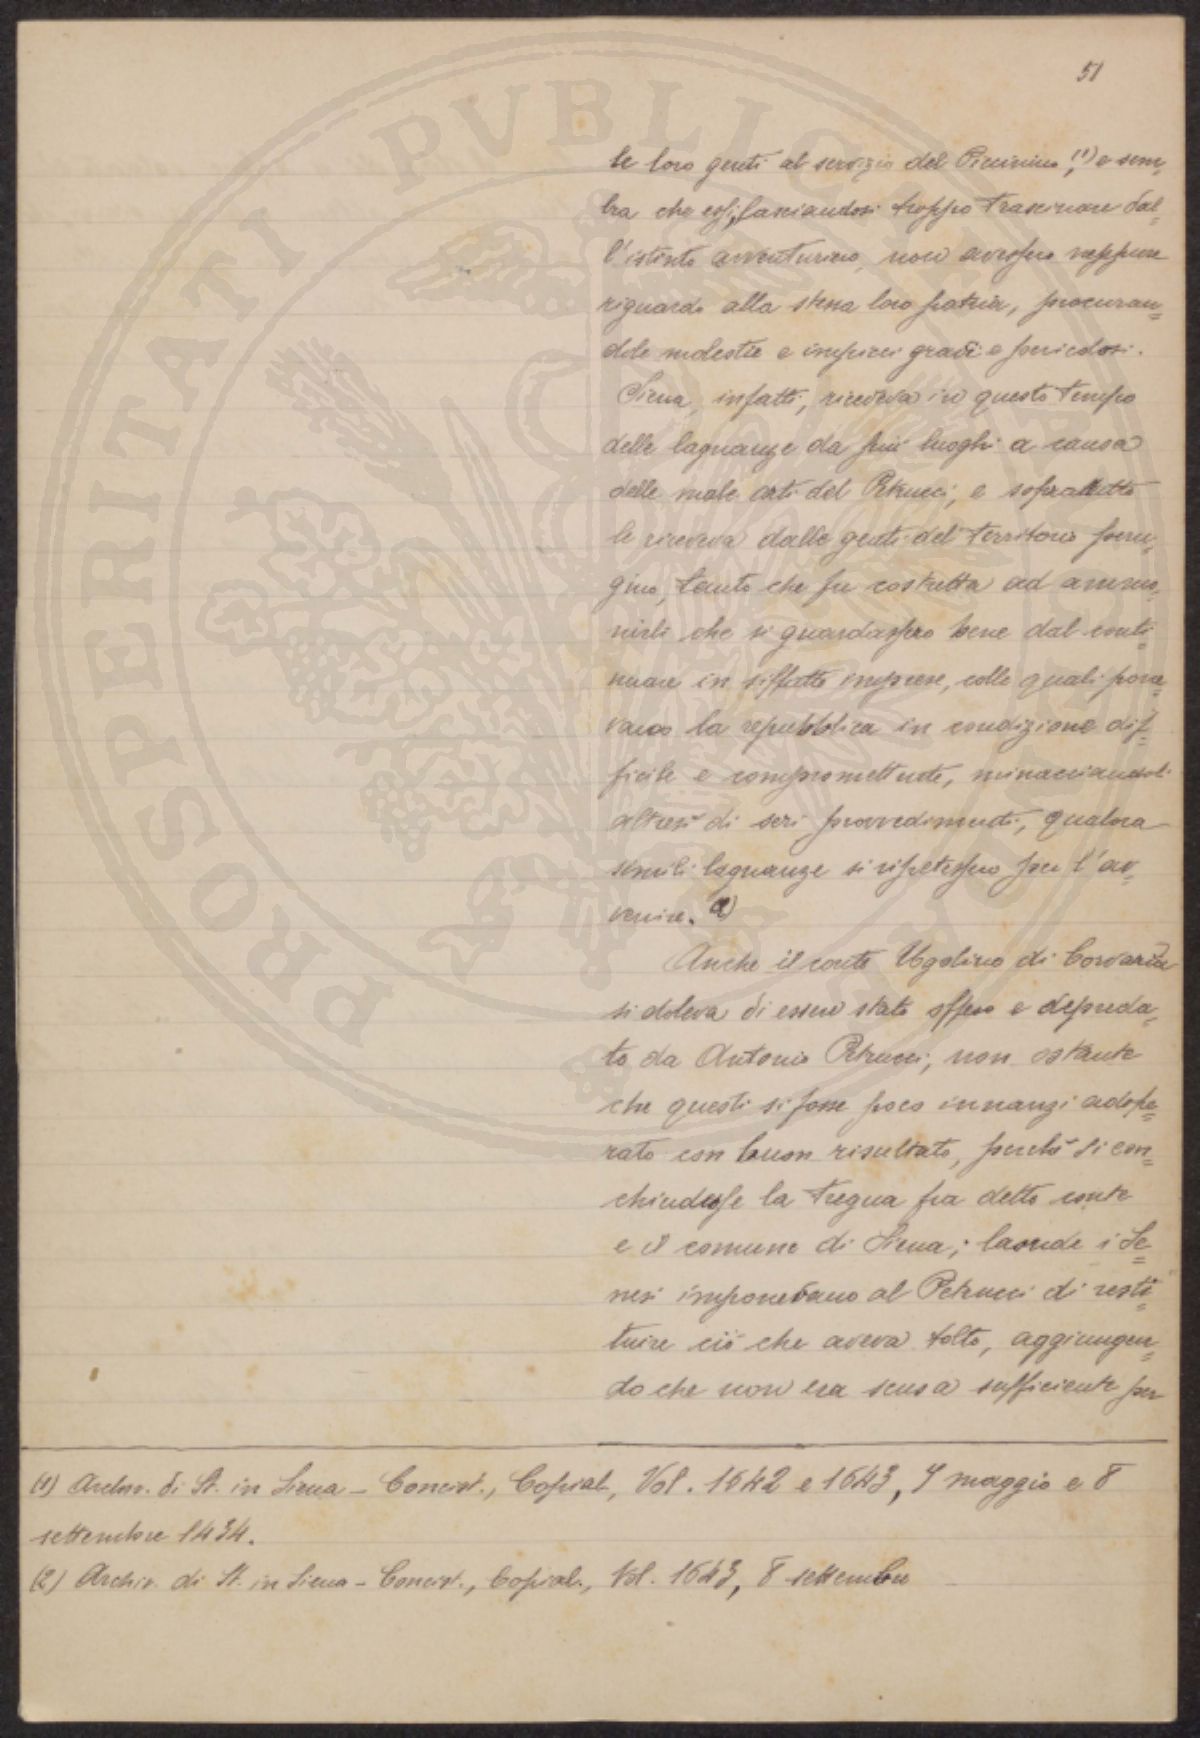 51
le loro genti al servizio del Piccinino,(1) e sem-
bra che essi, lasciandosi troppo trascinare dal-
l'istinto avventuriero, non avessero neppure
riguardo alla stessa loro patria, procuran-
dole molestie e impicci gravi e pericolosi.
Siena, infatti, riceveva in questo tempo
delle lagnanze da più luoghi a causa
delle male arti del Petrucci, e sopratutto
le riceveva dalle genti del territorio peru-
gino, tanto che fu costretta ad ammo-
nirli che si guardassero bene dal conti
nuare in siffatte imprese, colle quali pone-
vano la repubblica in condizione dif-
ficile e compromettente, minacciandoli
altresì di seri provvedimenti, qualora
simili lagnanze si ripetessero per l'av-
venire. (2)
Anche il conte Ugolino di Corvara
si doleva di essere stato offeso e depreda-
to da Antonio Petrucci, non ostante
che questi si fosse poco innanzi adope-
rato con buon risultato, perchè si con-
chiudesse la tregua fra detto conte
e il comune di Siena; laonde i Se-
nesi imponevano al Petrucci di resti-
tuire ciò che aveva tolto, aggiungen-
do che non era scusa sufficiente per
(1) Archiv. di St. in Siena - Concist., Copial., Vol. 1642 e 1643, 7 maggio e 8
settembre 1434.
(2) Archiv. di St. in Siena - Concist., Copial., Vol. 1643, 8 settembre
PROSPERITATI PVBLICAE